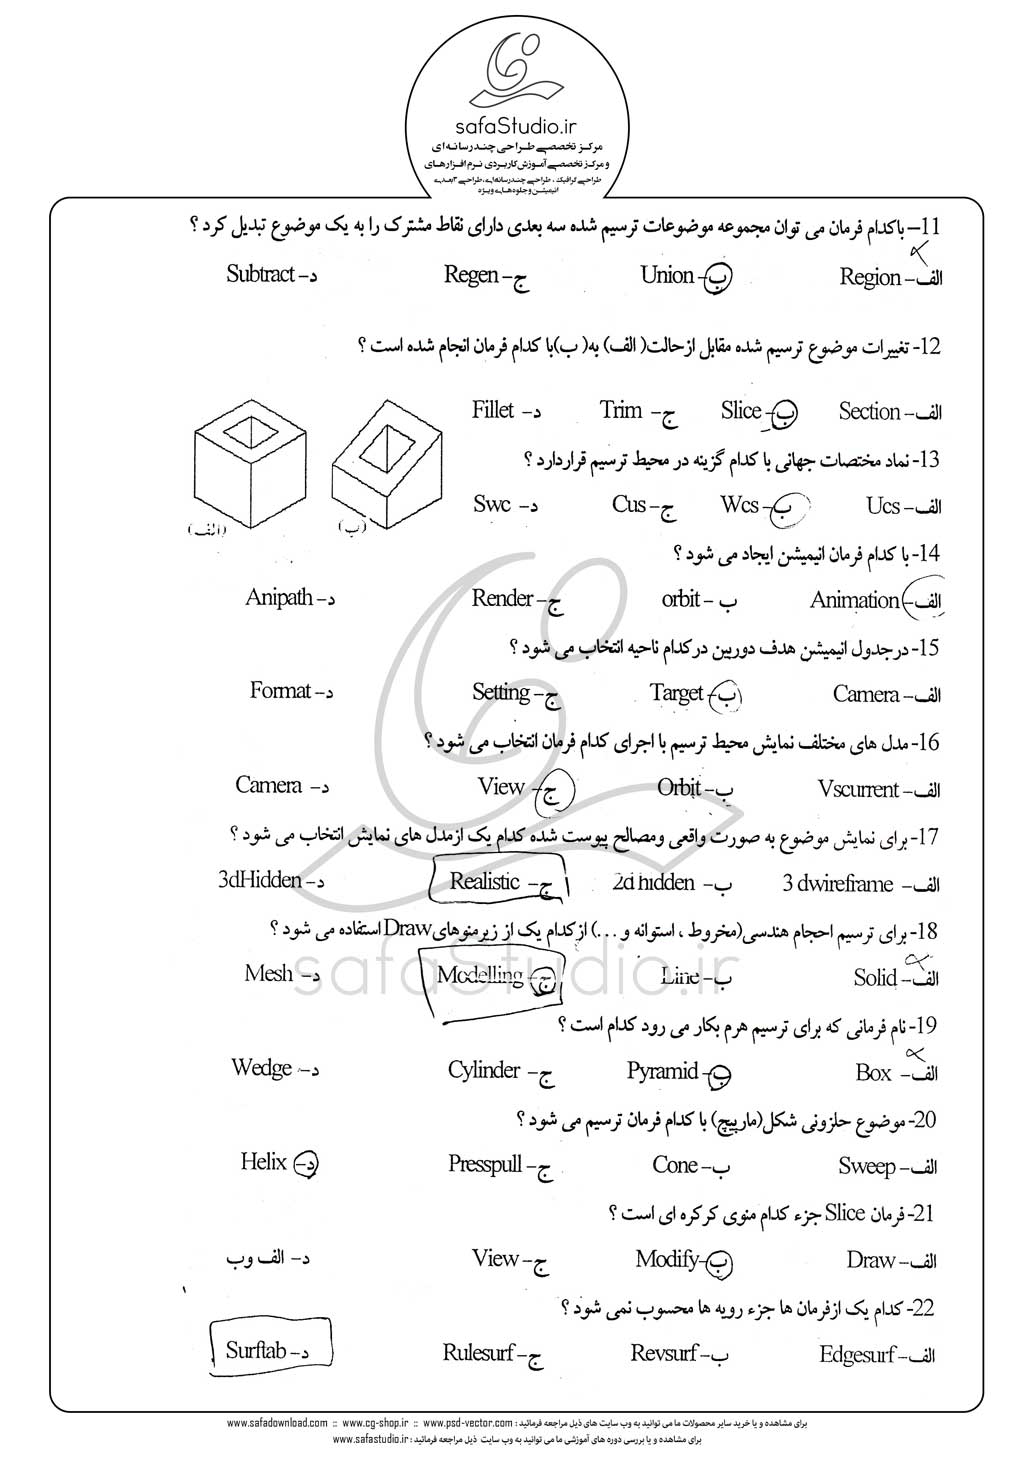 safaStudio.ir
مرکز تخصصی طراحی چندرسانه‌ای
و مرکز تخصصی آموزش کاربردی نرم افزارهای
طراحی گرافیک ، طراحی چندرسانه‌ای، طراحی ۳بعدی
انیمیشن و جلوه‌های ویژه
11– باکدام فرمان می توان مجموعه موضوعات ترسیم شده سه بعدی دارای نقاط مشترک را به یک موضوع تبدیل کرد ؟
الف– Region ب– Union ج– Regen د– Subtract
12- تغییرات موضوع ترسیم شده مقابل ازحالت( الف) به( ب)با کدام فرمان انجام شده است ؟
الف– Section ب– Slice ج– Trim د– Fillet
(الف) (ب)
13- نماد مختصات جهانی با کدام گزینه در محیط ترسیم قراردارد ؟
الف– Ucs ب– Wcs ج– Cus د– Swc
14- با کدام فرمان انیمیشن ایجاد می شود ؟
الف– Animation ب– orbit ج– Render د– Anipath
15- درجدول انیمیشن هدف دوربین درکدام ناحیه انتخاب می شود ؟
الف– Camera ب– Target ج– Setting د– Format
16- مدل های مختلف نمایش محیط ترسیم با اجرای کدام فرمان انتخاب می شود ؟
الف– Vscurrent ب– Orbit ج– View د– Camera
17- برای نمایش موضوع به صورت واقعی ومصالح پیوست شده کدام یک ازمدل های نمایش انتخاب می شود ؟
الف– 3 dwireframe ب– 2d hidden ج– Realistic د– 3dHidden
18- برای ترسیم احجام هندسی(مخروط ، استوانه و ...) ازکدام یک از زیرمنوهایDraw استفاده می شود ؟
الف– Solid ب– Line ج– Modelling د– Mesh
safaStudio.ir
19- نام فرمانی که برای ترسیم هرم بکار می رود کدام است ؟
الف– Box ب– Pyramid ج– Cylinder د– Wedge
20- موضوع حلزونی شکل(مارپیچ) با کدام فرمان ترسیم می شود ؟
الف– Sweep ب– Cone ج– Presspull د– Helix
21- فرمان Slice جزء کدام منوی کرکره ای است ؟
الف– Draw ب– Modify ج– View د– الف وب
22- کدام یک ازفرمان ها جزء رویه ها محسوب نمی شود ؟
الف– Edgesurf ب– Revsurf ج– Rulesurf د– Surftab
برای مشاهده و یا خرید سایر محصولات ما می توانید به وب سایت های ذیل مراجعه فرمائید : www.safadownload.com :: www.cg-shop.ir :: www.psd-vector.com
برای مشاهده و یا بررسی دوره های آموزشی ما می توانید به وب سایت ذیل مراجعه فرمائید : www.safastudio.ir